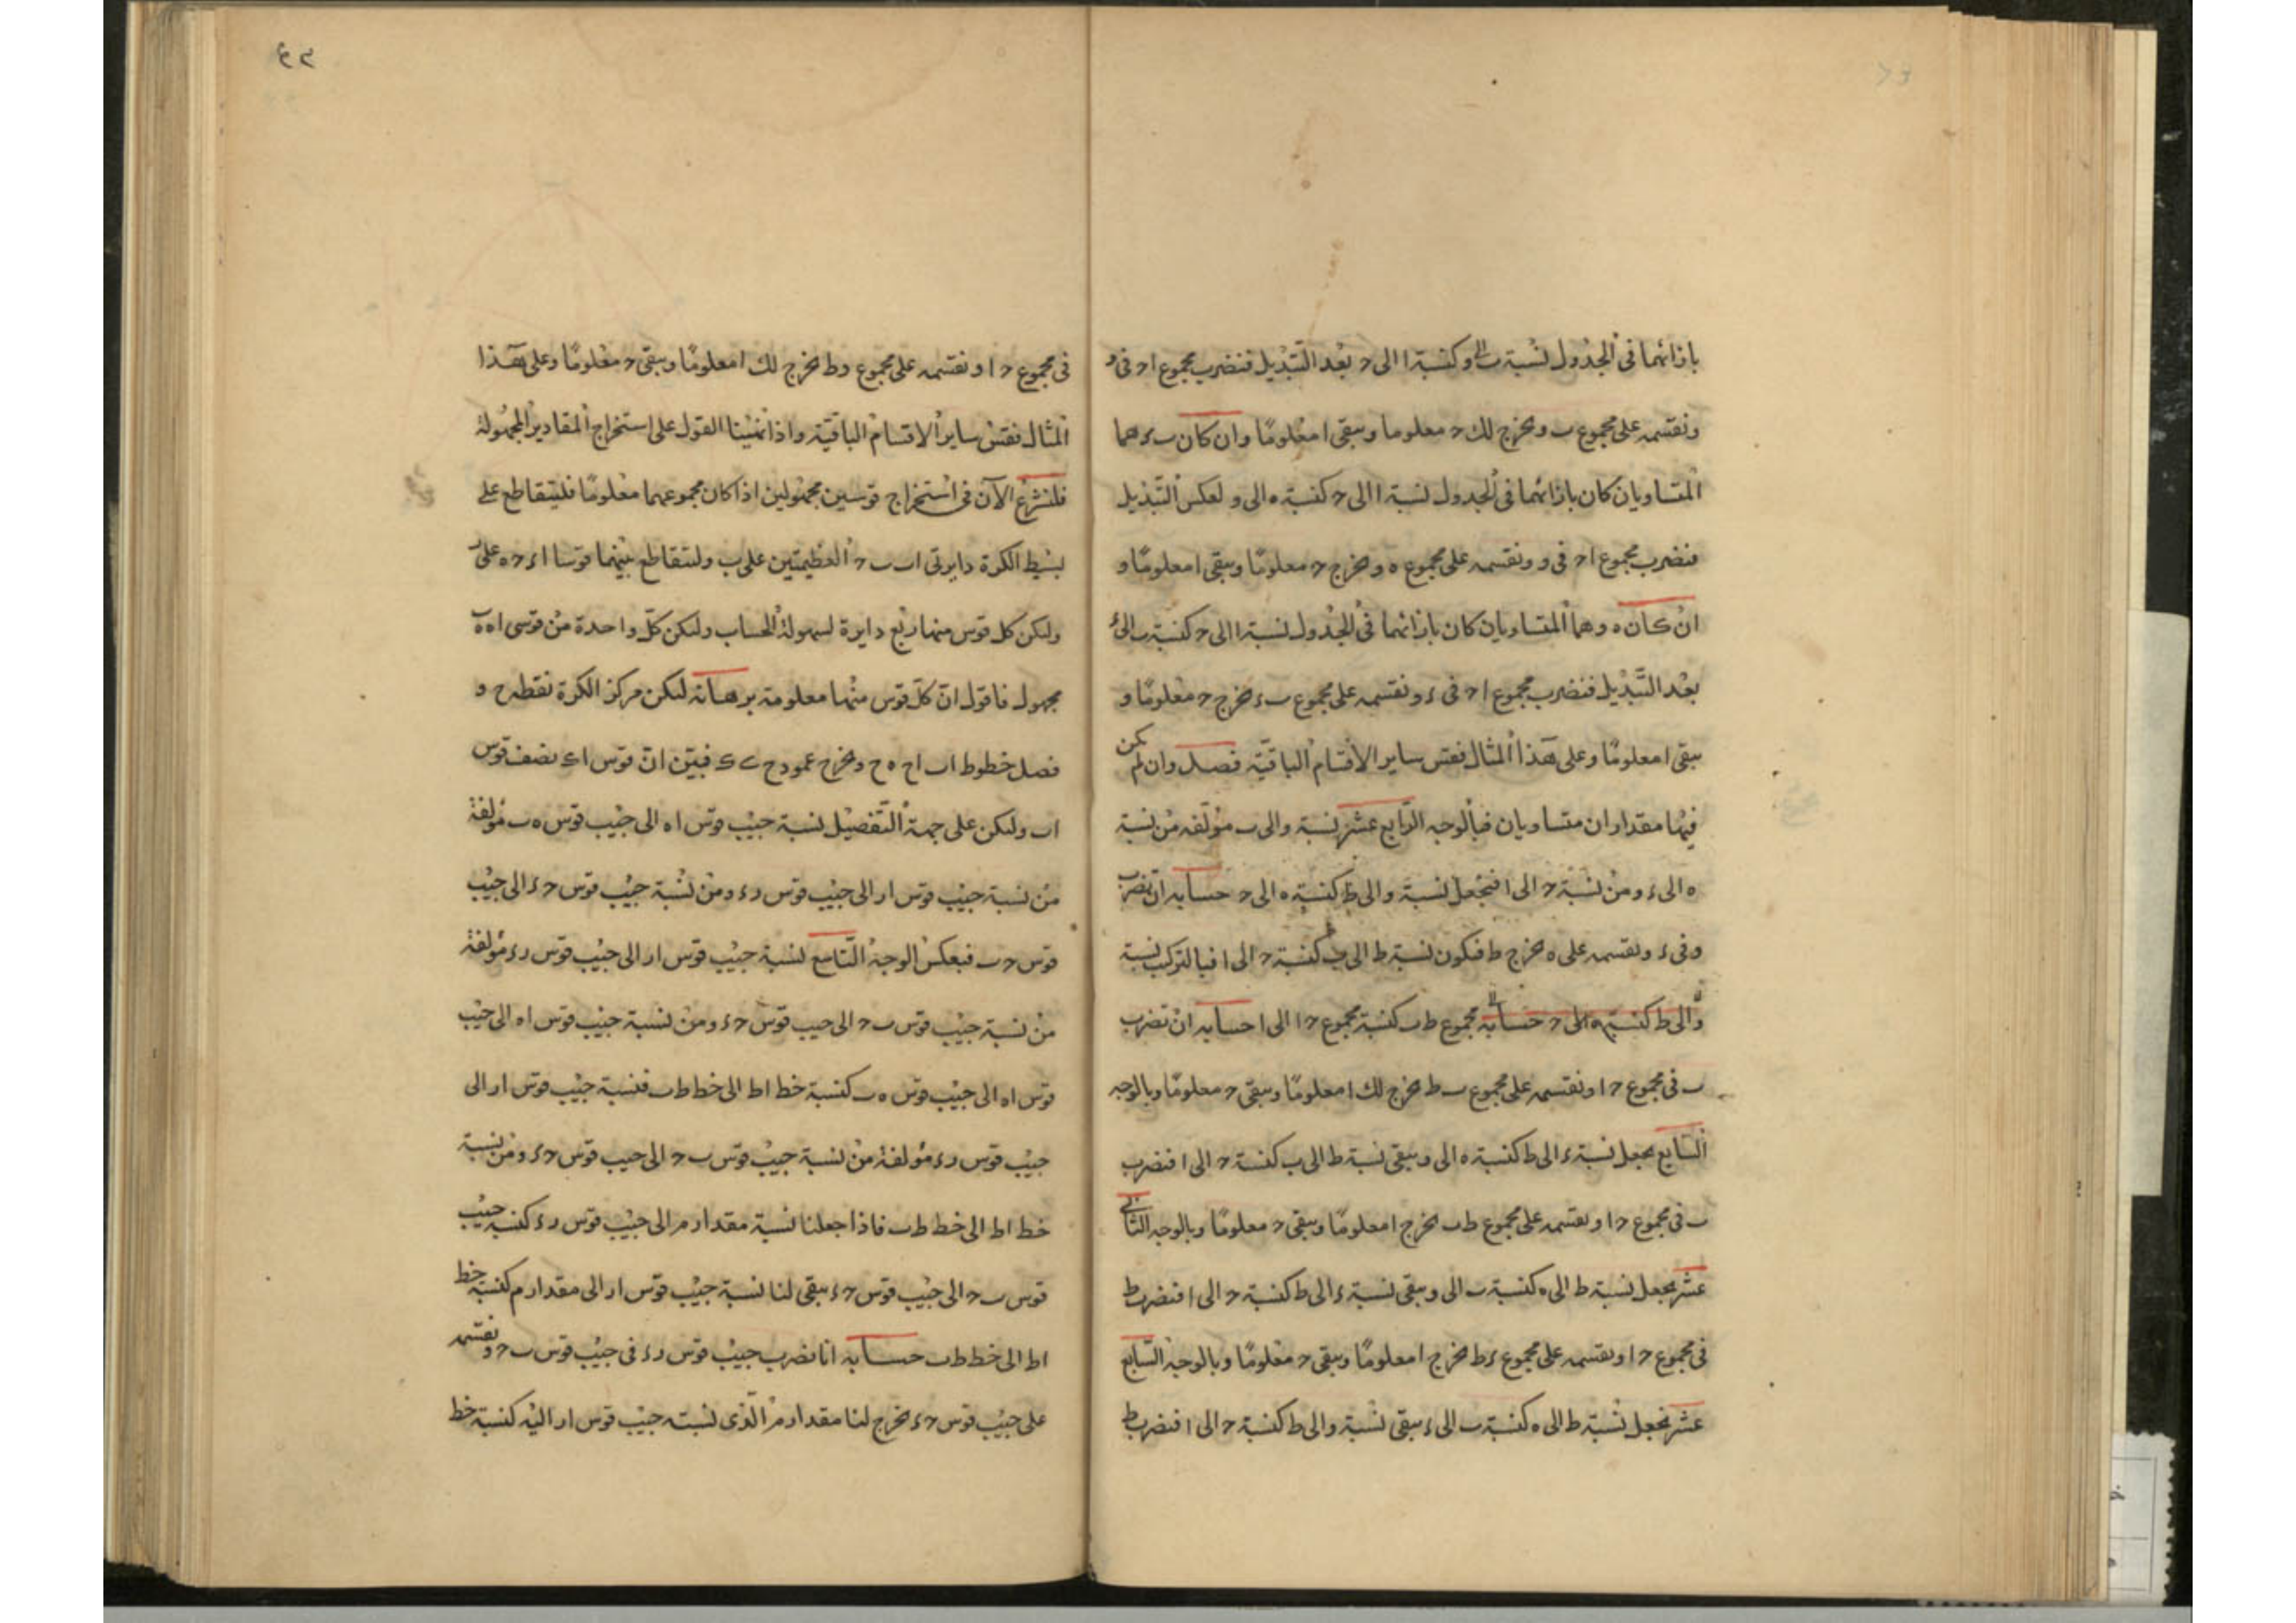 بازائهما فى الجدول نسبة ب الى و كنسبة ا الى ح بعد التبديل فنضرب مجموع ا ح فى و
ونقسمه على مجموع ب و يخرج لك ح معلوما ويبقى ا معلومًا وان كان ب ء هما
المتساويان كان بازائهما فى الجدول نسبة ا الى ح كنسبة ه الى و لعكس التبديل
فنضرب مجموع ا ح فى و ونقسمه على مجموع ه و يخرج ح معلومًا ويبقى ا معلومًا و
ان كان ه و هما المتساويان كان بازائهما فى الجدول نسبة ا الى ح كنسبة ب الى ء
بعد التبديل فنضرب مجموع ا ح فى ء ونقسمه على مجموع ب ء يخرج ح معلومًا و
يبقى ا معلومًا وعلى هذا المثال فقس ساير الاقسام الباقية فصل وان لم يكن
فيها مقداران متساويان فبالوجه الرابع عشر نسبة و الى ب مؤلفه من نسبة
ه الى ء ومن نسبة ح الى ا فنجعل نسبة و الى ط كنسبة ه الى ح حسابه ان نضرب
و فى ء ونقسمه على ه يخرج ط فتكون نسبة ط الى ب كنسبة ح الى ا فبالتركيب نسبة
و الى ط كنسبة ه الى ح حسابه مجموع ط ب كنسبة مجموع ح ا الى ا حسابه ان تضرب
ب فى مجموع ح ا ونقسمه على مجموع ب ط يخرج لك ا معلومًا ويبقى ح معلومًا وبالوجه
السابع نجعل نسبة ء الى ط كنسبة ه الى و يبقى نسبة ط الى ب كنسبة ح الى ا فنضرب
ب فى مجموع ح ا ونقسمه على مجموع ط ب يخرج ا معلومًا ويبقى ح معلومًا وبالوجه الثانى
عشر نجعل نسبة ط الى ه كنسبة ب الى و يبقى نسبة ء الى ط كنسبة ح الى ا فنضرب ط
فى مجموع ح ا ونقسمه على مجموع ء ط يخرج ا معلومًا ويبقى ح معلومًا وبالوجه السابع
عشر نجعل نسبة ط الى ه كنسبة ب الى ء يبقى نسبة و الى ط كنسبة ح الى ا فنضرب ط
فى مجموع ح ا ونقسمه على مجموع و ط يخرج لك ا معلومًا ويبقى ح معلومًا وعلى هذا
المثال فقس ساير الاقسام الباقية واذا تمينا القول على استخراج المقادير المجهولة
فلنشرع الآن فى استخراج قوسين مجهولين اذا كان مجموعهما معلومًا فليتقاطع على
بسيط الكرة دايرتى ا ب ب ح العظيمتين على ب ولتتقاطع بينهما قوسا ا ء ح ه على ر
وليكن كل قوس منها ربع دايرة لسهولة الحساب وليكن كل واحدة من قوسى ا ه ه ب
مجهول فاقول ان كل قوس منها معلومة برهانه ليكن مركز الكرة نقطة ح و
فصل خطوط ا ب ا ح ه ح ويخرج عمود ح ك فبين ان قوس ا ك نصف قوس
ا ب وليكن على جهة التفصيل نسبة جيب قوس ا ه الى جيب قوس ه ب مؤلفة
من نسبة جيب قوس ا ر الى جيب قوس ر ء ومن نسبة جيب قوس ح ء الى جيب
قوس ح ب فبعكس الوجه التاسع نسبة جيب قوس ا ر الى جيب قوس ر ء مؤلفة
من نسبة جيب قوس ب ح الى جيب قوس ح ء ومن نسبة جيب قوس ا ه الى جيب
قوس ا ه الى جيب قوس ه ب كنسبة خط ا ط الى خط ط ب فنسبة جيب قوس ا ر الى
جيب قوس ر ء مؤلفة من نسبة جيب قوس ب ح الى جيب قوس ح ء ومن نسبة
خط ا ط الى خط ط ب فاذا جعلنا نسبة مقدار م الى جيب قوس ر ء كنسبة جيب
قوس ب ح الى جيب قوس ح ء يبقى لنا نسبة جيب قوس ا ر الى مقدار م كنسبة خط
ا ط الى خط ط ب حسابه انا نضرب جيب قوس ر ء فى جيب قوس ب ح ونقسمه
على جيب قوس ح ء يخرج لنا مقدار م الذى نسبته جيب قوس ا ر اليه كنسبة خط